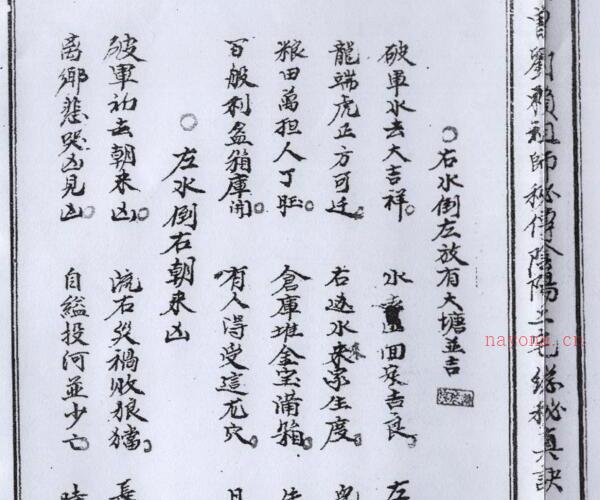 曾劉賴祖師秘傳陰陽二宅總秘真訣
○右水倒左放有大塘並吉
破軍水去大吉祥。水 回 吉良。左
龍端虎正方可迁。右邊水來家生度
粮田萬担人丁旺。倉庫堆金宝滿箱。
百般利益箱庫開。有人得受這 穴。日
○左水倒右朝來凶
破軍初去朝來凶。流右災禍敗狼 。
离鄉悲哭凶見凶。自縊投河並少亡。時
nayona.cn